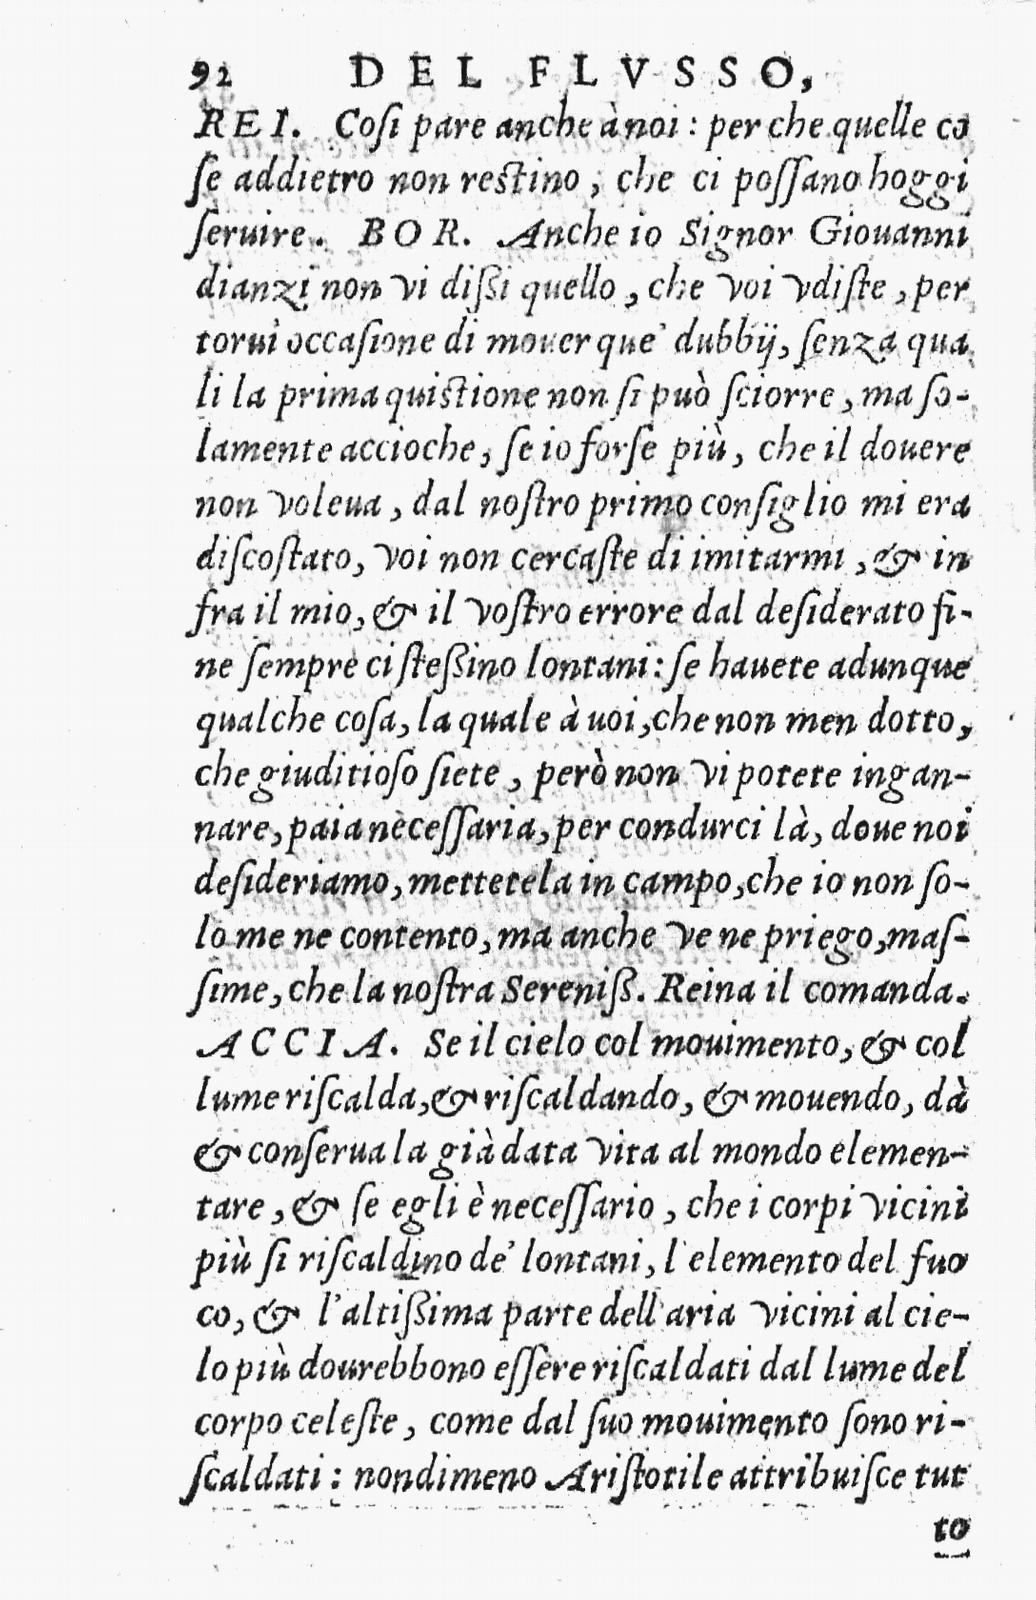 92 DEL FLVSSO,
REI. Coſi pare anche à noi : per che quelle co
ſe addietro non reſtino, che ci poſſano hoggi
ſeruire. BOR. Anche io Signor Giouanni
dianzi non vi diſſi quello, che voi vdiſte, per
torui occaſione di mouer que' dubbij, ſenza qua
li la prima quiſtione non ſi può ſciorre, ma ſo-
lamente accioche, ſe io forſe più, che il douere
non voleua, dal noſtro primo conſiglio mi era
diſcoſtato, voi non cercaſte di imitarmi, & in
fra il mio, & il voſtro errore dal deſiderato fi-
ne ſempre ci ſteſſino lontani: ſe hauete adunque
qualche coſa, la quale à uoi, che non men dotto,
che giuditioſo ſiete, però non vi potete ingan-
nare, paia neceſſaria, per condurci là, doue noi
deſideriamo, mettetela in campo, che io non ſo-
lo me ne contento, ma anche ve ne priego, maſ-
ſime, che la noſtra Sereniſſ. Reina il comanda.
ACCIA. Se il cielo col mouimento, & col
lume riſcalda, & riſcaldando, & mouendo, dà
& conſerua la già data vita al mondo elemen-
tare, & ſe egli è neceſſario, che i corpi vicini
più ſi riſcaldino de' lontani, l'elemento del fuo
co, & l'altiſſima parte dell'aria vicini al cie-
lo più dourebbono eſſere riſcaldati dal lume del
corpo celeſte, come dal ſuo mouimento ſono ri-
ſcaldati : nondimeno Ariſtotile attribuiſce tut
to